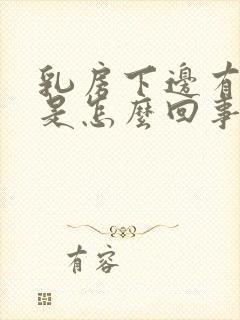 乳房下邊有
是怎麼回事
有容